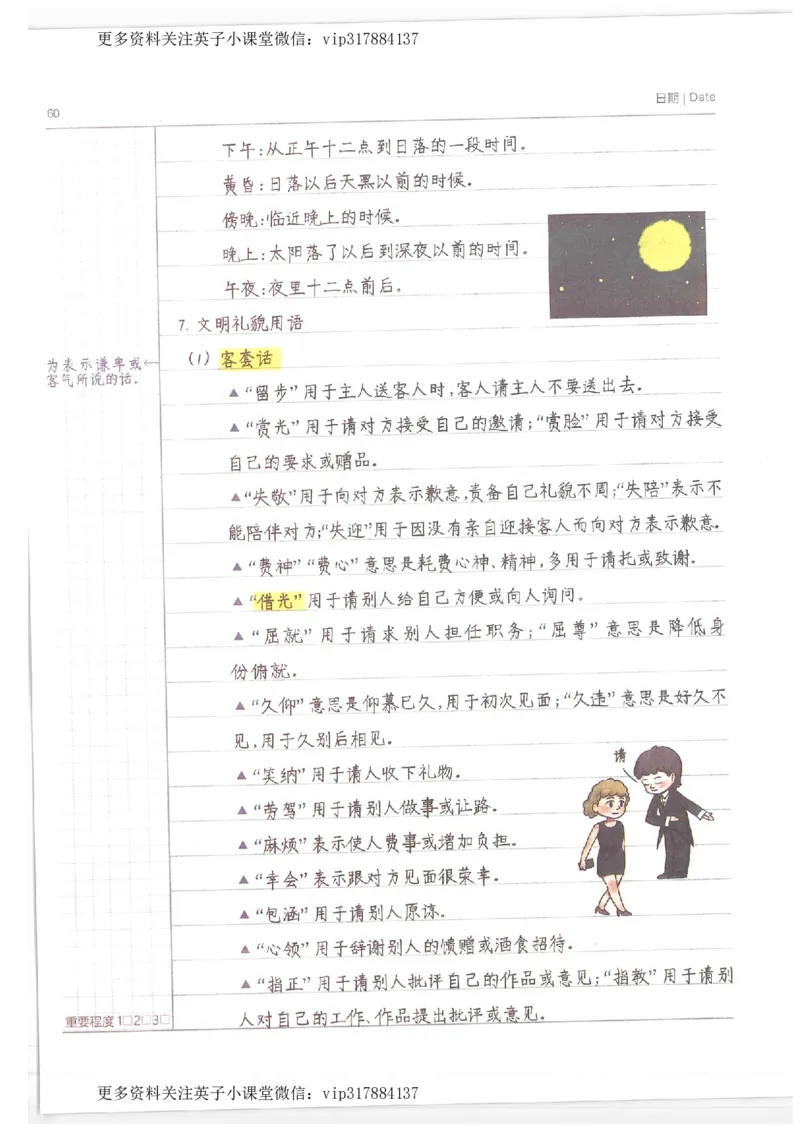 更多资料关注英子小课堂微信：vip317884137
日期 | Date
60
下午：从正午十二点到日落的一段时间。
黄昏：日落以后天黑以前的时候。
傍晚：临近晚上的时候。
晚上：太阳落了以后到深夜以前的时间。
午夜：夜里十二点前后。
7. 文明礼貌用语
（1）客套话
为表示谦卑或
客气所说的话。
▲“留步”用于主人送客人时，客人请主人不要送出去。
▲“赏光”用于请对方接受自己的邀请；“赏脸”用于请对方接受
自己的要求或赠品。
▲“失敬”用于向对方表示歉意，责备自己礼貌不周；“失陪”表示不
能陪伴对方；“失迎”用于因没有亲自迎接客人而向对方表示歉意。
▲“费神”“费心”意思是耗费心神、精神，多用于请托或致谢。
▲“借光”用于请别人给自己方便或向人询问。
▲“屈就”用于请求别人担任职务；“屈尊”意思是降低身
份俯就。
▲“久仰”意思是仰慕已久，用于初次见面；“久违”意思是好久不
见，用于久别后相见。
请
▲“笑纳”用于请人收下礼物。
▲“劳驾”用于请别人做事或让路。
▲“麻烦”表示使人费事或增加负担。
▲“幸会”表示跟对方见面很荣幸。
▲“包涵”用于请别人原谅。
▲“心领”用于辞谢别人的馈赠或酒食招待。
▲“指正”用于请别人批评自己的作品或意见；“指教”用于请别
人对自己的工作、作品提出批评或意见。
重要程度 1□2□3□
更多资料关注英子小课堂微信：vip317884137